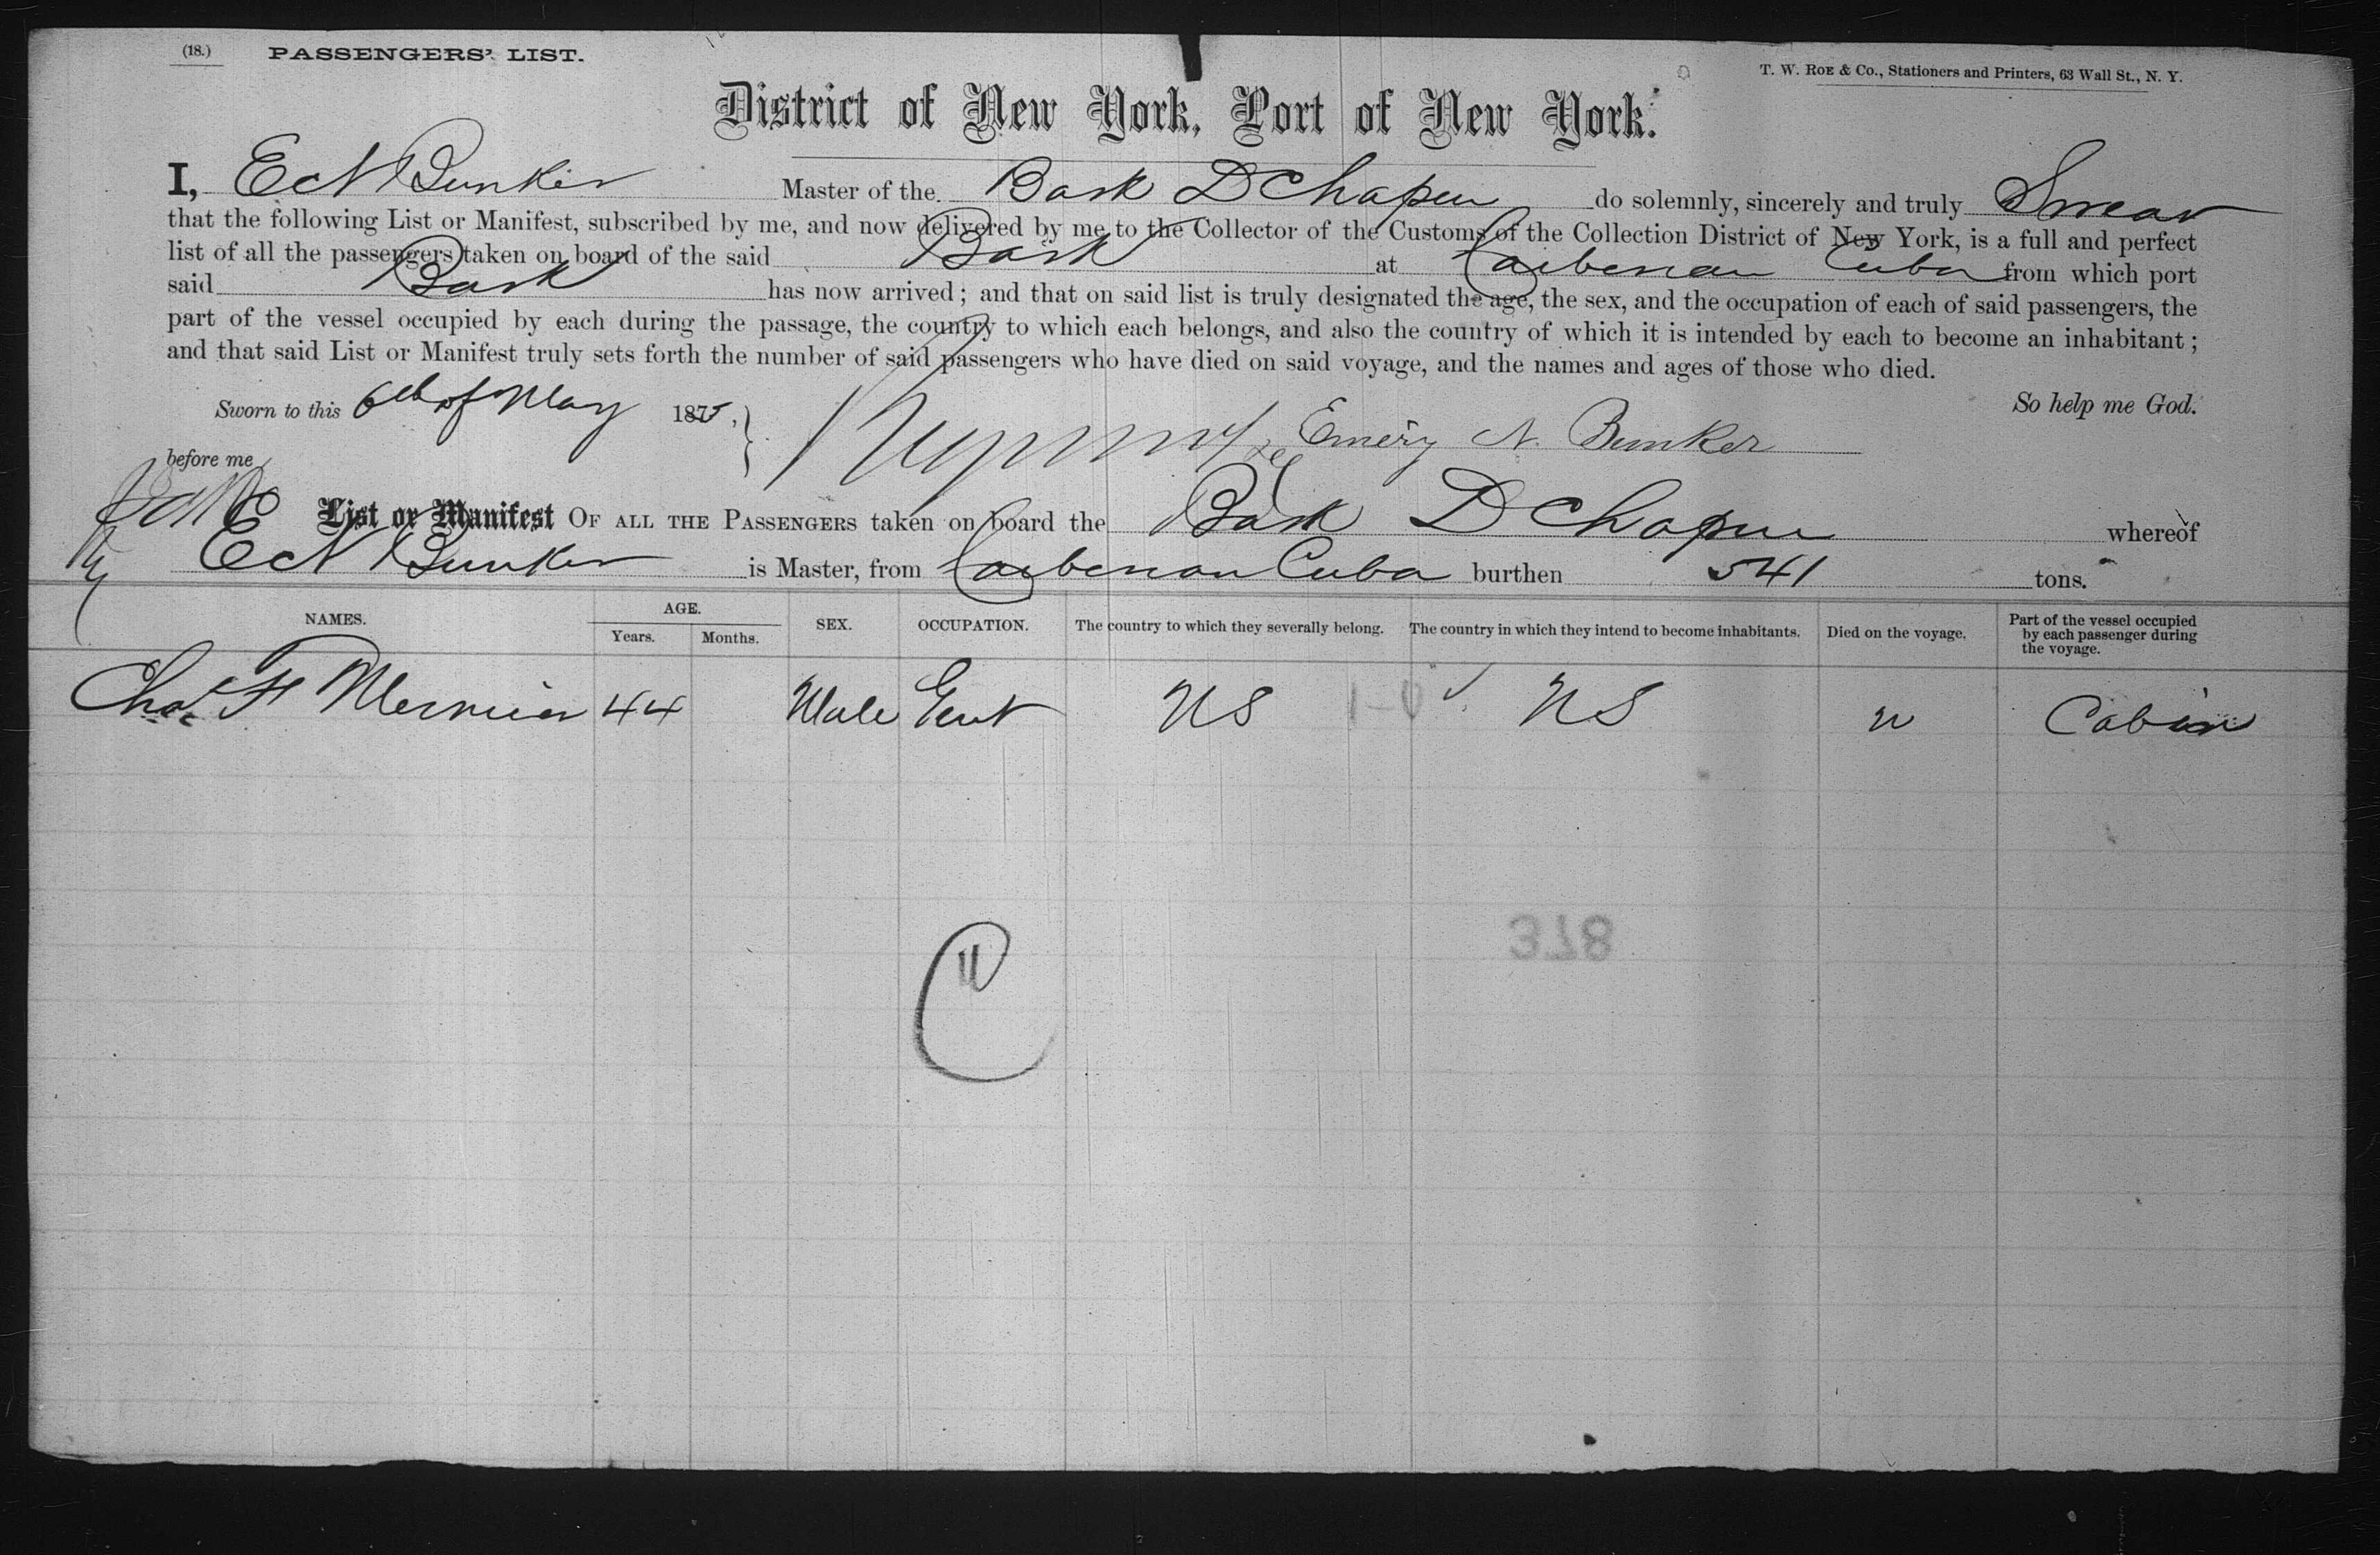 (18.) PASSENGERS' LIST.
T. W. ROE & Co., Stationers and Printers, 63 Wall St., N. Y.
District of New York, Port of New York.
I, E N Bunker Master of the Bark D Chapin do solemnly, sincerely and truly Swear
that the following List or Manifest, subscribed by me, and now delivered by me to the Collector of the Customs of the Collection District of New York, is a full and perfect
list of all the passengers taken on board of the said Bark at Caiberian Cuba from which port
said Bark has now arrived; and that on said list is truly designated the age, the sex, and the occupation of each of said passengers, the
part of the vessel occupied by each during the passage, the country to which each belongs, and also the country of which it is intended by each to become an inhabitant;
and that said List or Manifest truly sets forth the number of said passengers who have died on said voyage, and the names and ages of those who died.
Sworn to this 6th of May 1875, So help me God.
before me Emery N. Bunker
List or Manifest OF ALL THE PASSENGERS taken on board the Bark D Chapin whereof
E N Bunker is Master, from Caiberian Cuba burthen 541 tons.
NAMES. AGE. Years. Months. SEX. OCCUPATION. The country to which they severally belong. The country in which they intend to become inhabitants. Died on the voyage. Part of the vessel occupied by each passenger during the voyage.
Chas F 44 Male Gent US US Cabin
C
378